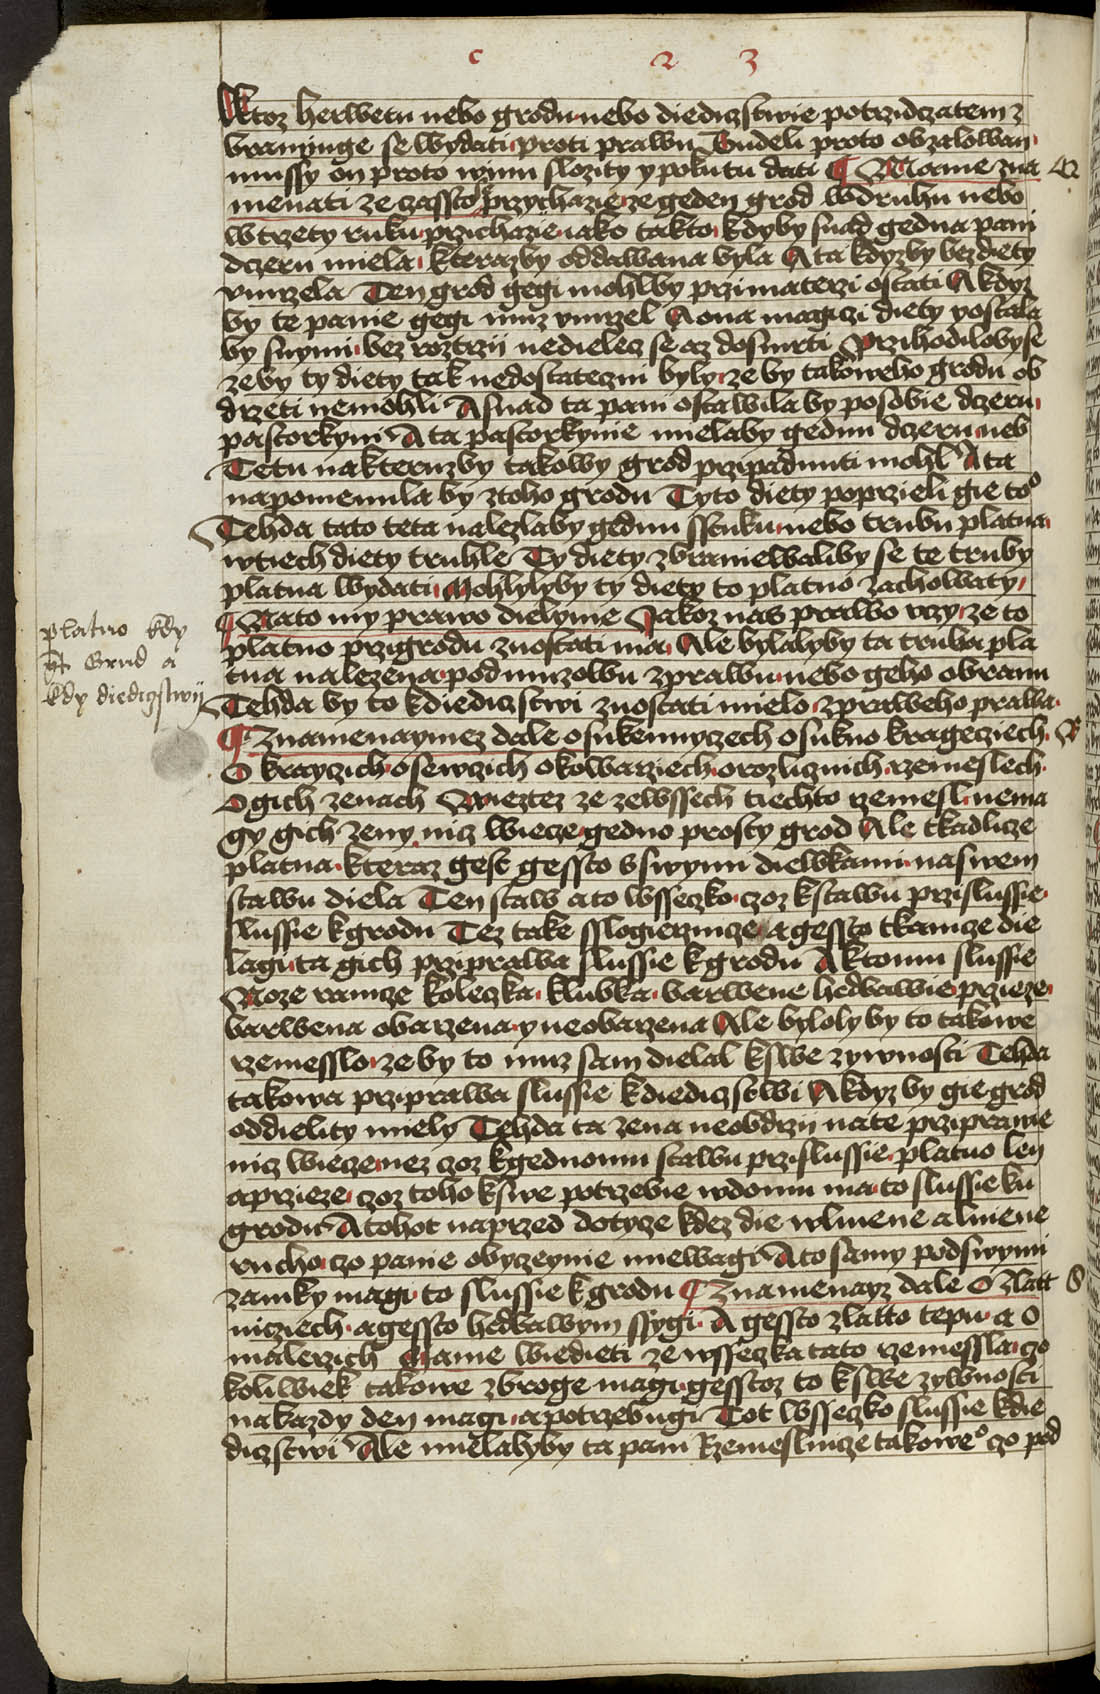 c 2 3
Ktoz herwetu nebo grodu nebo diediczstwie potrzidczatem z
braninge se wydati proti prawu Budeli proto obzalowan
mussy on proto winu slozity y pokutu dati ¶ Mame zna Q
menati ze czassto przychazie ze geden grod wdruhu nebo
wtrzety ruku przichazie iako takto kdyby snad gedna pani
dczeru miela kterazby oddawana byla A ta kdyzby bez diety
vmrzela Ten grod gegi mohlby przi materzi ostati A kdyz
by te panie gegi muz vmrzel A ona magiczi diety zostala
by snymi bez roztrzii nedielecz se az do smrti Przihodiloby se
zeby ty diety tak nedostateczni byly ze by takoweho grodu ob
drzeti nemohli A snad ta pani ostawila by po sobie dczeru
pastorkyni A ta pastorkynie mielaby gednu dczeru neb
Tetu na kteruzby takowy grod przipadnuti mohl A ta
napomenula by z toho grodu Tyto diety poprzieli gie toº
Tehda tato teta nalezlaby gednu sstuku nebo trubu platna
wtiech diety truhle Ty diety zbraniewaliby se te truby
platna wydati Mohlylyby ty diety to platno zachowaty
¶ Nato my prawo dielyme Jakoz nas prawo vczy ze to
platno przi grodu zuostati ma Ale bylalyby ta truba pla
tna nalezena pod muzowu zprawu nebo geho obranu
Tehda by to k diediczstwi zuostati mielo z praweho prawa
platno kdy
gt Grud a
kdy diediczstwij
¶ Znamenaymez dale o sukennyczech o sukno kragecziech R
O krayczich o sewczich o kowarziech o rozlicznich rzemeslech
O gich zenach Wieztez ze ze wssech tiechto rzemesl nema
gy gich zeny nicz wiecze gedno prosty grod Ale tkadlcze
platna kteraz gest gessto s swymi diewkami na swem
stawu diela Ten staw a to wsseczko czoz k stawu przislussie
slussie k grodu Tez take sslogierznicze a gessto tkanicze die
lagi ta gich przprawa slussie k grodu A k tomu slussie
Noze ramcze koleczka klubka barwene hedbawie przieze
barwena obarzena y neobarzena Ale byloly by to takowe
rzemesslo ze by to muz sam dielal k swe zywnosti Tehda
takowa prziprawa slussie k diediczstwi A kdyz by gie grod
oddielity miely Tehda ta zena neobdrzii na te prziprawie
nicz wiecze nez czoz k gednomu stawu przislussie platno len
a przieze czoz toho k swe potrzebie w domu ma to slussie ku
grodu A tohot naprzed dotycze kdez die wlniene a lniene
rucho czo panie obyczeynie miewagi A to samy pod swymi
zamky magi to slussie k grodu ¶ Znamenayz dale O Zlatt S
nicziech a gessto hedbawym ssygi A gessto zlatto tepu a O
malerzich Mame wiedieti ze wsseczka tato rzemessla czo
koliwiek takowe zbroge magi gesstoz to k swe zywnosti
na kazdy den magi a potrzebugi Tot wsseczko slussie k die
diczstwi Ale mielalyby ta pani Rzemeslnicze takoweº czo pod